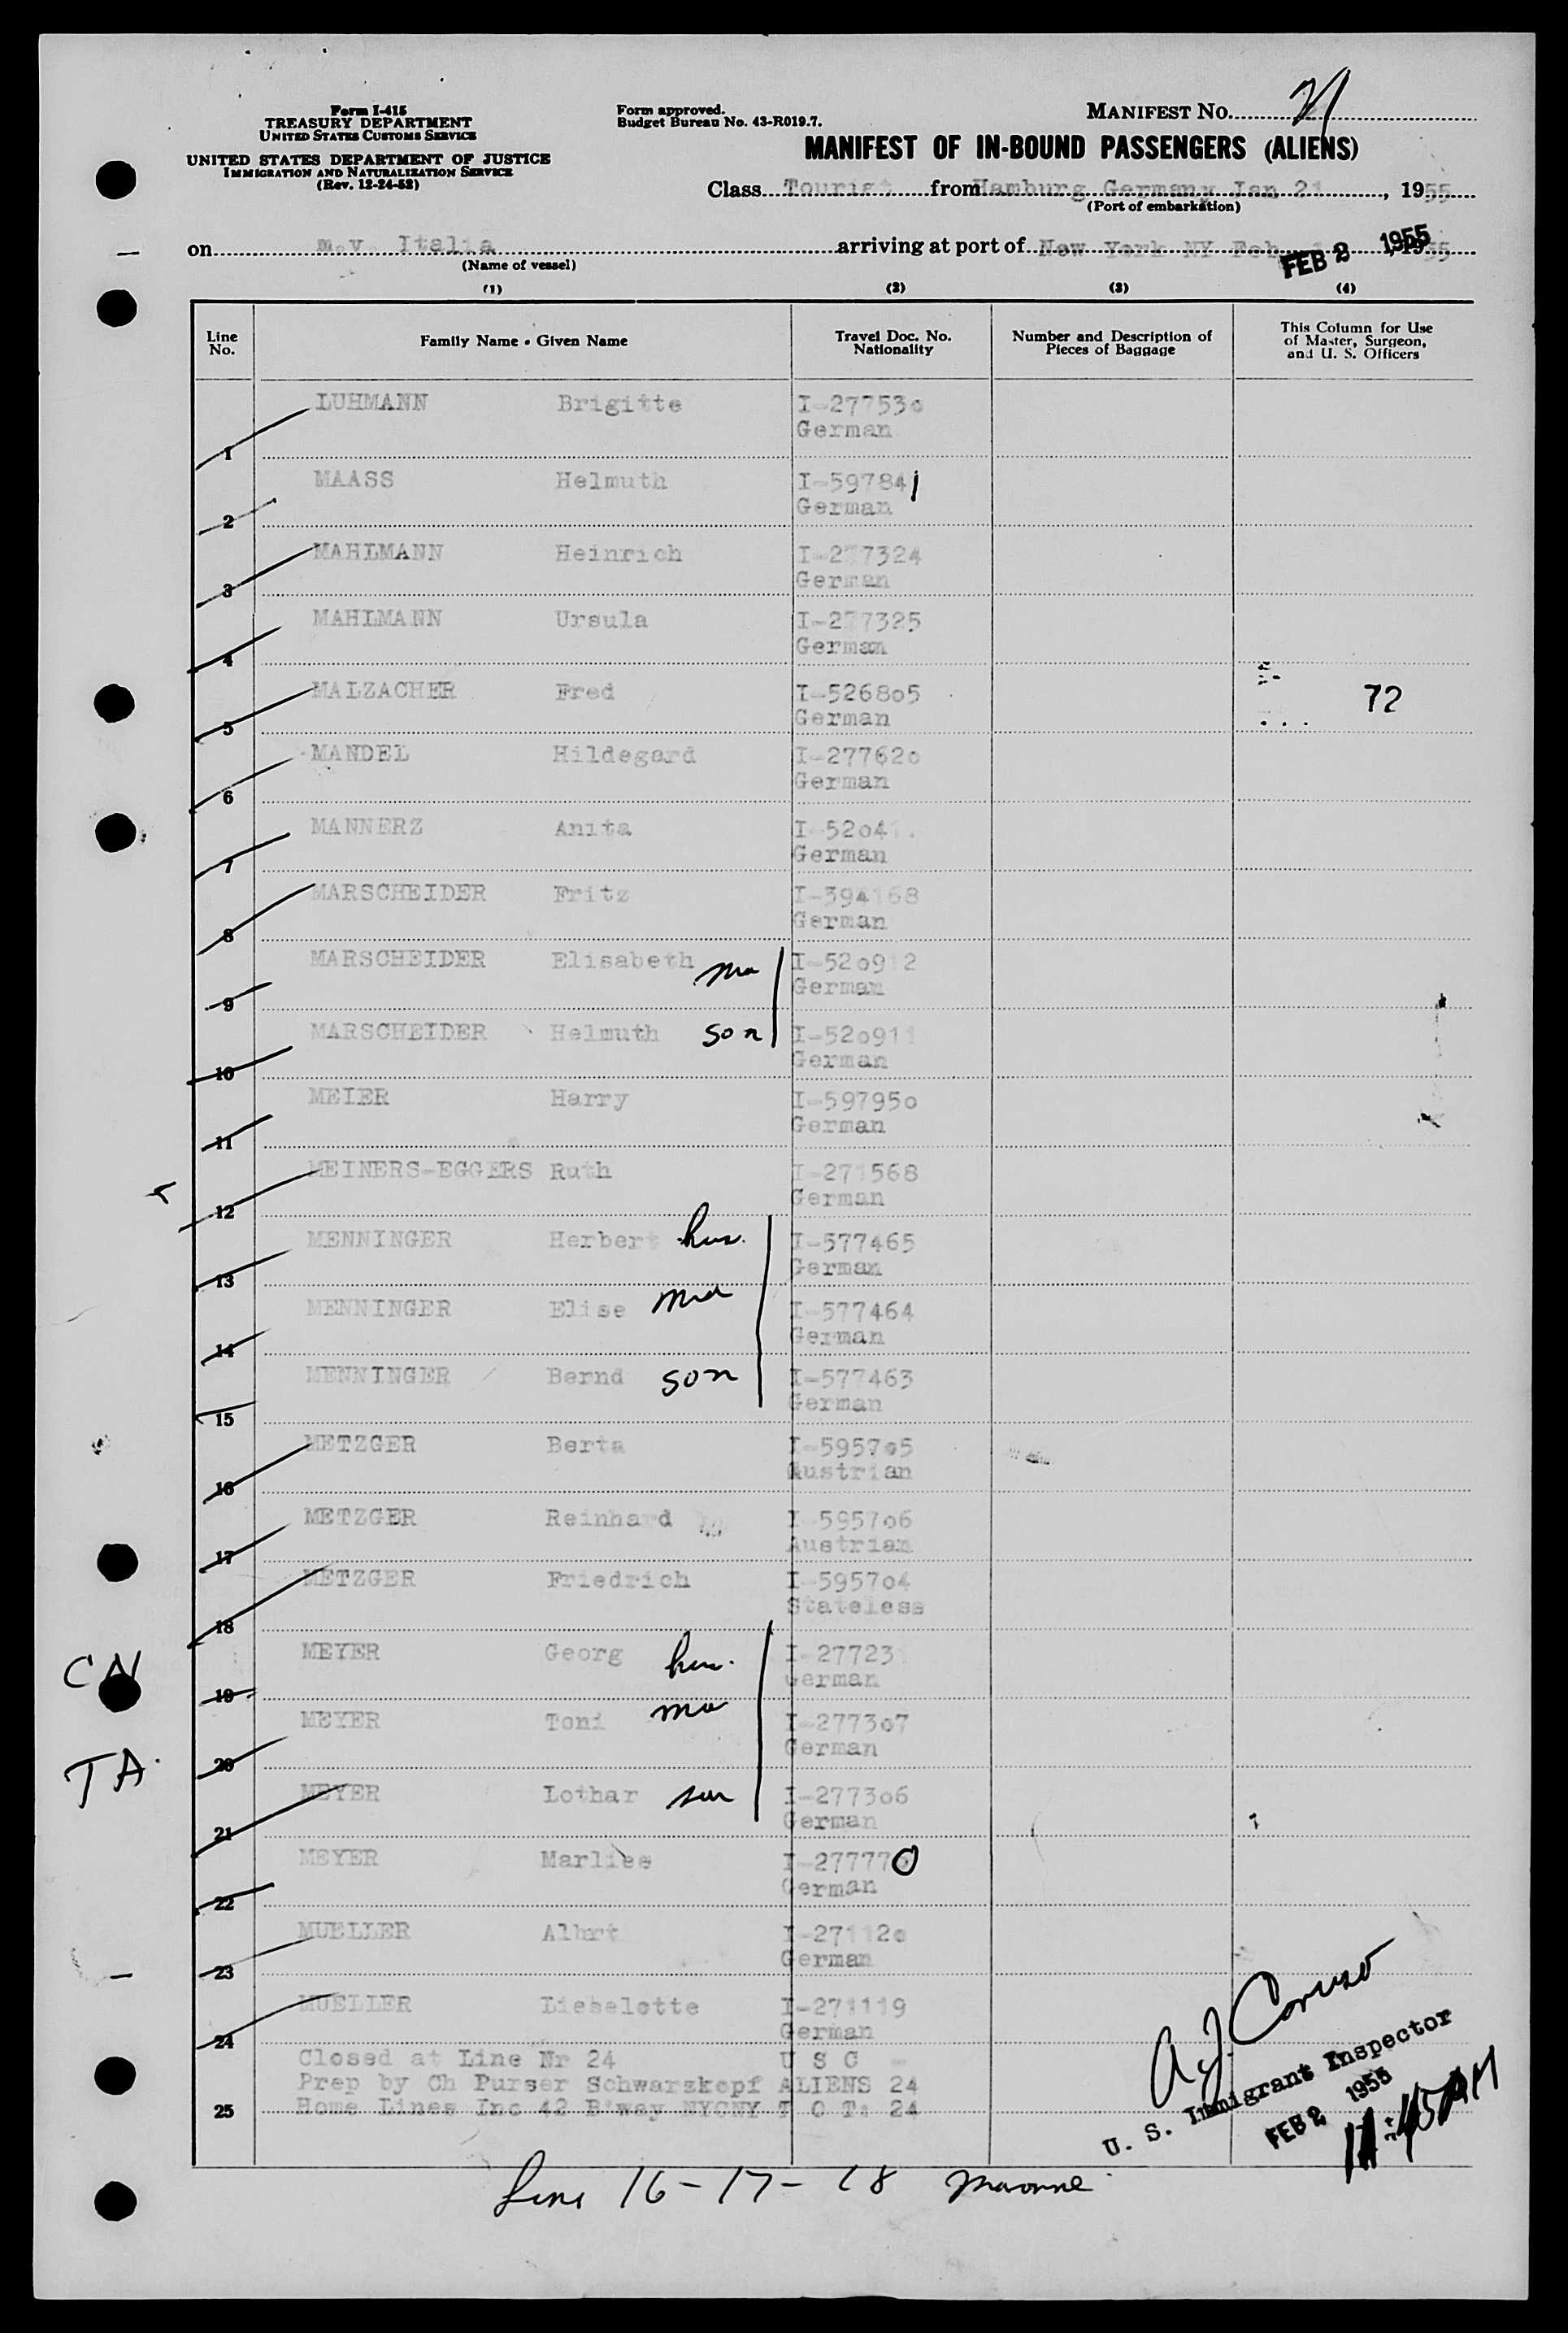 Form I-415
TREASURY DEPARTMENT
UNITED STATES CUSTOMS SERVICE
UNITED STATES DEPARTMENT OF JUSTICE
IMMIGRATION AND NATURALIZATION SERVICE
(Rev. 12-24-52)
Form approved.
Budget Bureau No. 43-R019.7.
MANIFEST No. 21
MANIFEST OF IN-BOUND PASSENGERS (ALIENS)
Class Tourist from Hamburg Germany Jan 21, 1955
(Port of embarkation)
on m.v. Italia arriving at port of New York NY Feb 1955
FEB 2 1955
(Name of vessel)
(1) (2) (3) (4)
Line No. Family Name - Given Name Travel Doc. No. Nationality Number and Description of Pieces of Baggage This Column for Use of Master, Surgeon, and U. S. Officers
LUHMANN Brigitte I-277530
1 German
MAASS Helmuth I-597841
2 German
MAHLMANN Heinrich I-277324
3 German
MAHLMANN Ursula I-277325
4 German
MALZACHER Fred I-526805 72
5 German
MANDEL Hildegard I-277620
6 German
MANNERZ Anita I-52041
7 German
MARSCHEIDER Fritz I-394168
8 German
MARSCHEIDER Elisabeth mo I-520912
9 German
MARSCHEIDER Helmuth son I-520911
10 German
MEIER Harry I-597950
11 German
MEINERS-EGGERS Ruth I-271568
12 German
MENNINGER Herbert hus. I-577465
13 German
MENNINGER Elise mo I-577464
14 German
MENNINGER Bernd son I-577463
15 German
METZGER Berta I-595705
16 Austrian
METZGER Reinhard I-595706
17 Austrian
METZGER Friedrich I-595704
18 Stateless
MEYER Georg hus. I-27723
19 German
MEYER Toni mo I-277307
20 German
MEYER Lothar son I-277306
21 German
MEYER Marlies I-277770
22 German
MUELLER Albrt I-271120
23 German
MUELLER Lieselotte I-271119
24 German
Closed at Line Nr 24 U S C -
Prep by Ch Purser Schwarzkopf ALIENS 24
25 Home Lines Inc 42 B'way NYCNY T O T: 24
CN
TA.
A.J. Caruso
U. S. Immigrant Inspector
FEB 2 1955
11:45 AM
Line 16-17-18